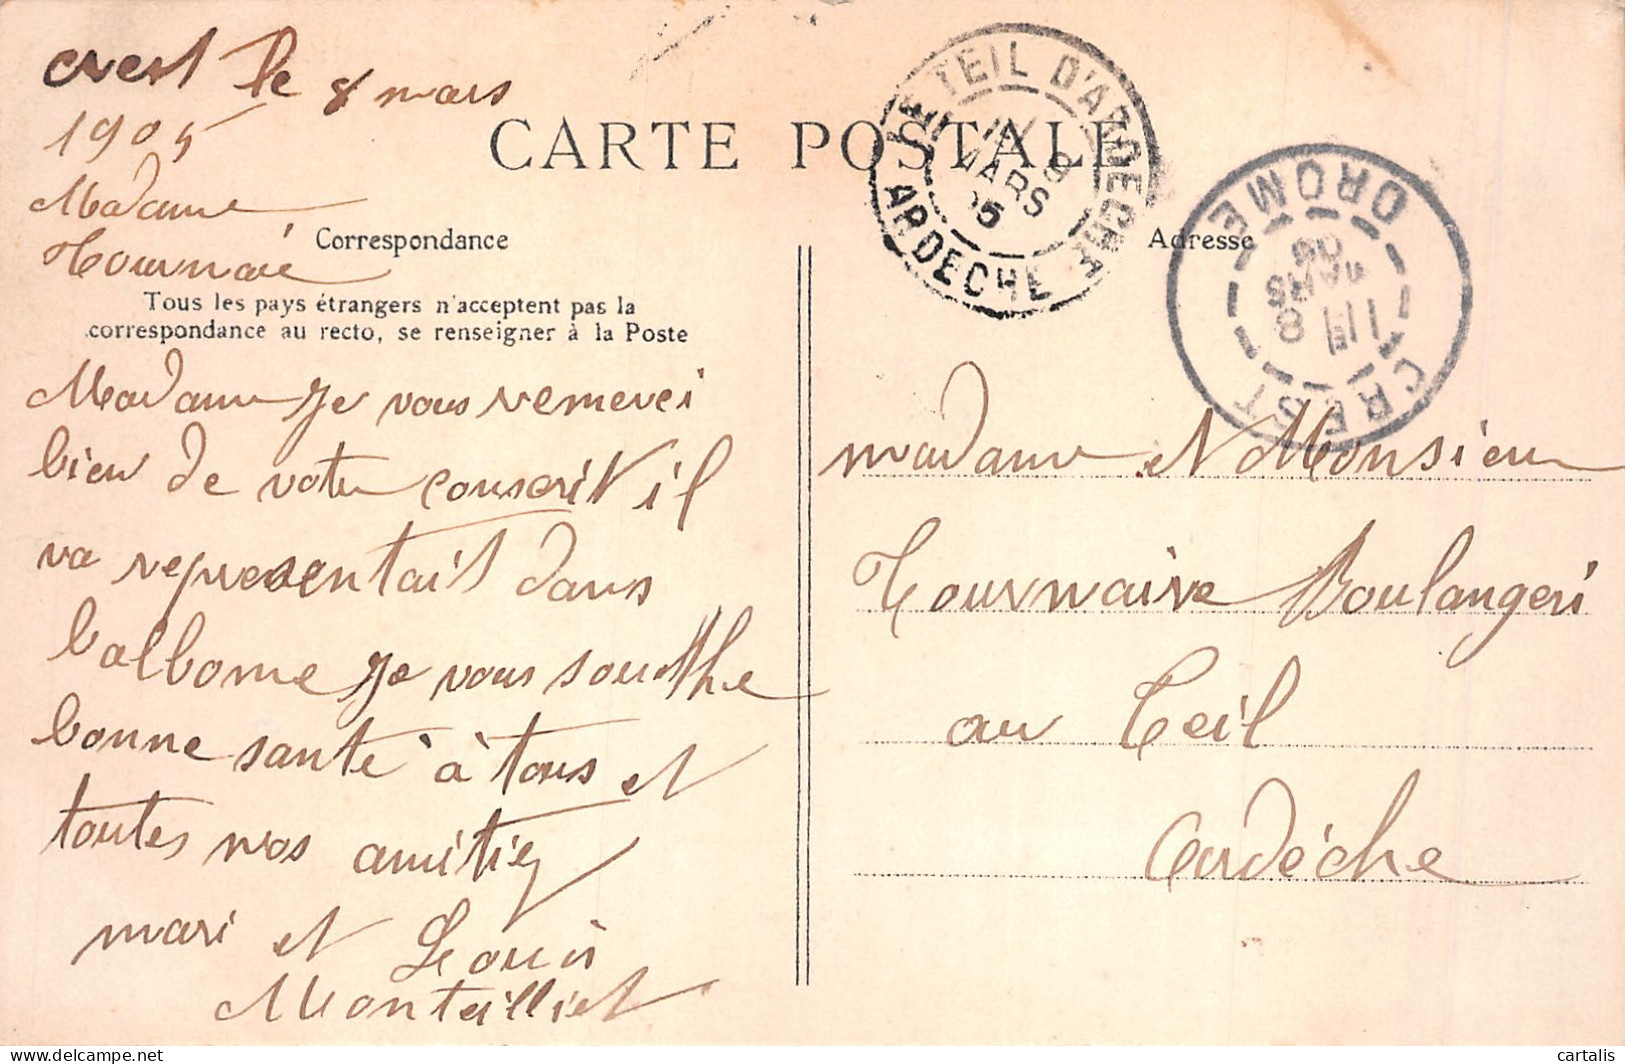 crest le 8 mars
1905
Madame
Tournaie
CARTE POSTALE
Correspondance
Tous les pays étrangers n'acceptent pas la
correspondance au recto, se renseigner à la Poste
Madame je vous remerci
bien de votre conscrit il
va representait dans
l'albome je vous souethe
bonne santé à tous et
toutes nos amitiez
mari et Louis
Montailliet
LE TEIL D'ARDECHE
9
MARS
05
ARDECHE
Adresse
CREST
8
MARS
05
DROME
madame et Monsieur
Tournaire Boulangeri
au Teil
Ardéche
www.delcampe.net
cartalis